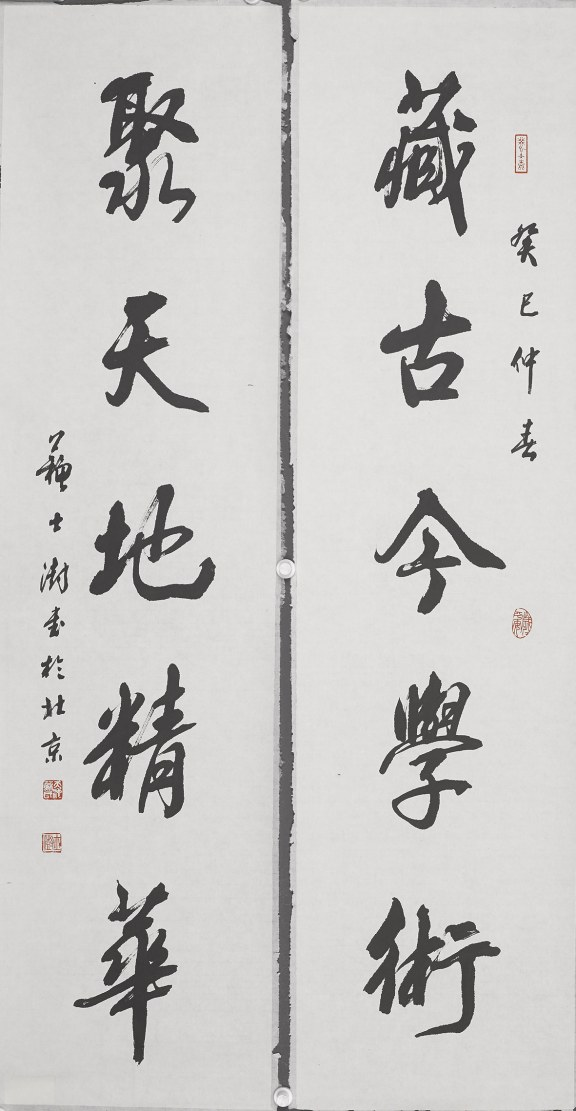 癸巳仲春
藏古今學術
聚天地精華
蘇士澍書於北京